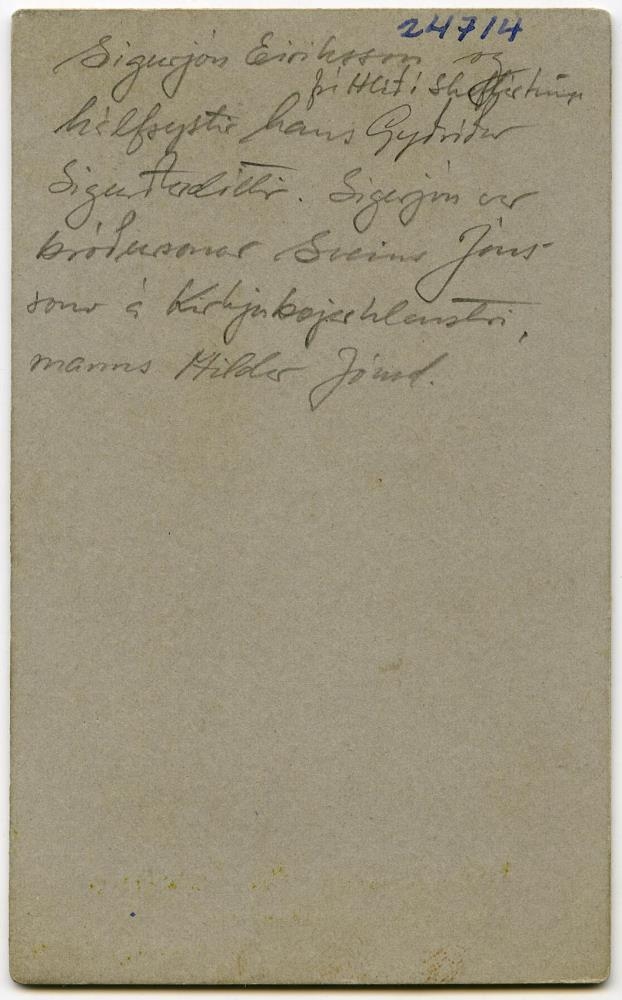 24714
Sigurjón Eiríksson og
frá Hlíð í Skaftártungu
hálfsystir hans Gyðríður
Sigurðardóttir. Sigurjón var
bróðursonur Sveins Jóns-
sonar á Kirkjubæjarklaustri,
manns Hildar Jónsd.